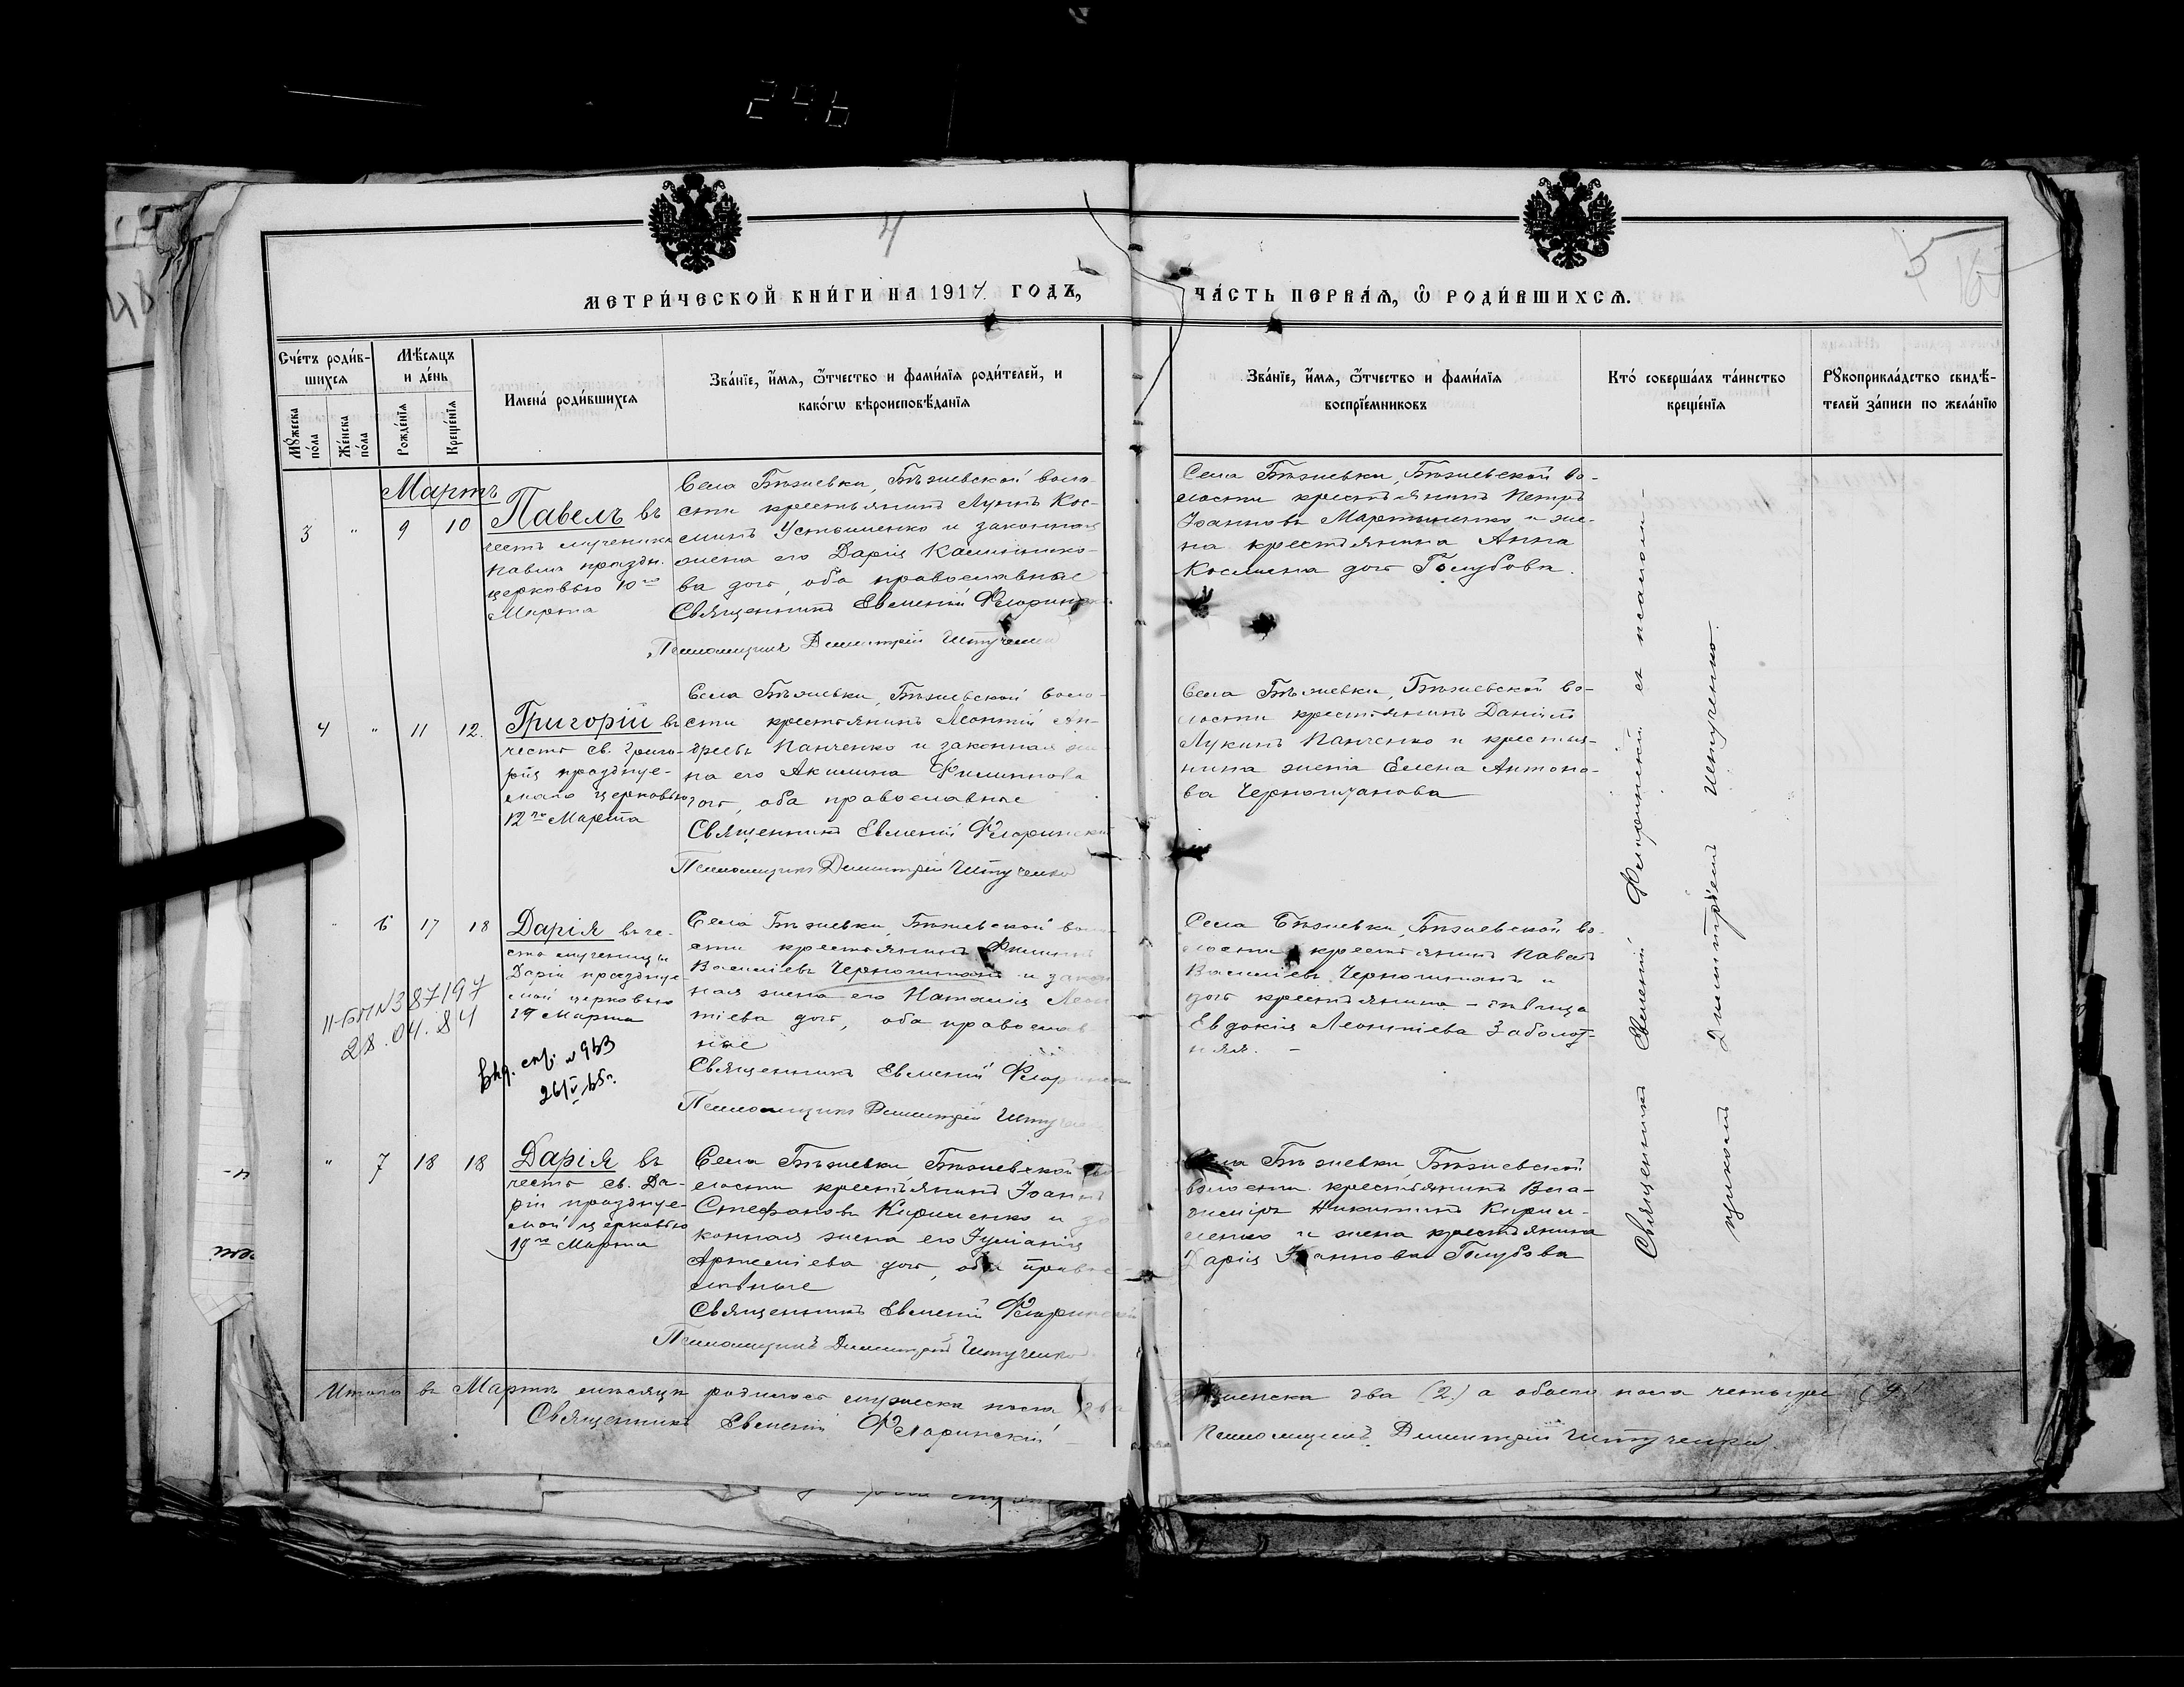 246
4
5
16
МЕТРИ́ЧЕСКОЙ КНИ́ГИ НА 1917 ГОДЪ,
ЧА́СТЬ ПЕРВА́Я, Ѡ РОДИ́ВШИХСЯ.
Сче́тъ роди́в-
шихся
Му́жеска по́ла
Же́нска по́ла
Мѣ́сяцъ
и де́нь
Рожде́нія
Креще́нія
Имена́ роди́вшихся
Зва́ніе, и́мя, ѻ҆́тчество и фами́лія роди́телей, и
како́гѡ вѣроисповѣ́данія
Зва́ніе, и́мя, ѻ҆́тчество и фами́лія
воспріе́мниковъ
Кто́ соверша́лъ та́инство
креще́нія
Рꙋкоприкла́дство свидѣ́-
телей за́писи по жела́нію
Мартъ
3 " 9 10
Павелъ въ
честь мученика
Павла праздн.
церковью 10го
Марта
Села Бѣжевки, Бѣжевской воло-
сти крестьянинъ Лукъ Кос-
минъ Устименко и законная
жена его Дарія Калинико-
ва дочь, оба православные
Священникъ Евменій
Псаломщикъ Димитрій
Села Бѣжевки, Бѣжевской во-
лости крестьянинъ Петръ
Іоанновъ Мартыненко и же-
на крестьянина Анна
Космина дочь Голубова.
4 " 11 12.
Григорій въ
честь св. Григо-
рія праздnуе-
маго церковью
12го Марта
Села Бѣжевки, Бѣжевской воло-
сти крестьянинъ Леонтій Ан-
дреевъ Панченко и законная же-
на его Акилина Филиппова
дочь, оба православные
Священникъ Евменій
Псаломщикъ Димитрій
Села Бѣжевки, Бѣжевской во-
лости крестьянинъ Даніилъ
Лукинъ Панченко и крестья-
нина жена Елена Антоно-
ва Черноштанова
" 6 17 18
Дарія въ че-
сть мученицы
Даріи праздnуе-
мой церковью
19 Марта
II-БП N387197
28.04.84
N 943
Села Бѣжевки, Бѣжевской воло-
сти крестьянинъ Филиппъ
Василіевъ Черноштанъ и закон
ная жена его Наталія Леон
тіева дочь, оба православ
ные
Священникъ Евменій
Псаломщикъ Димитрій
Села Бѣжевки, Бѣжевской во-
лости крестьянинъ Павелъ
Василіевъ Черноштанъ и
дочь крестьянина - дѣвица
Евдокія Леонтіева Заболот-
няя. -
" 7 18 18
Дарія въ
честь св. Да-
ріи праздnуе-
мой церковью
19го Марта
Села Бѣжевки Бѣжевской во
лости крестьянинъ Іоаннъ
Стефановъ Кириленко и за
конная жена его Іуліанія
Артеміева дочь, оба право-
славные
Священникъ Евменій
Псаломщикъ Димитрій
Села Бѣжевки, Бѣжевской
волости крестьянинъ Вла-
диміръ Никитинъ Кири-
ленко и жена крестьянина
Дарія Іоаннова Голубова
Священникъ Евменій Флоринскій съ псалом-
щикомъ Димитріемъ
Итого въ Мартѣ мѣсяцѣ родилось мужеска пола два
женска два (2) а обоего пола четыре (4)
Священникъ Евменій Флоринскій
Псаломщикъ Димитрій